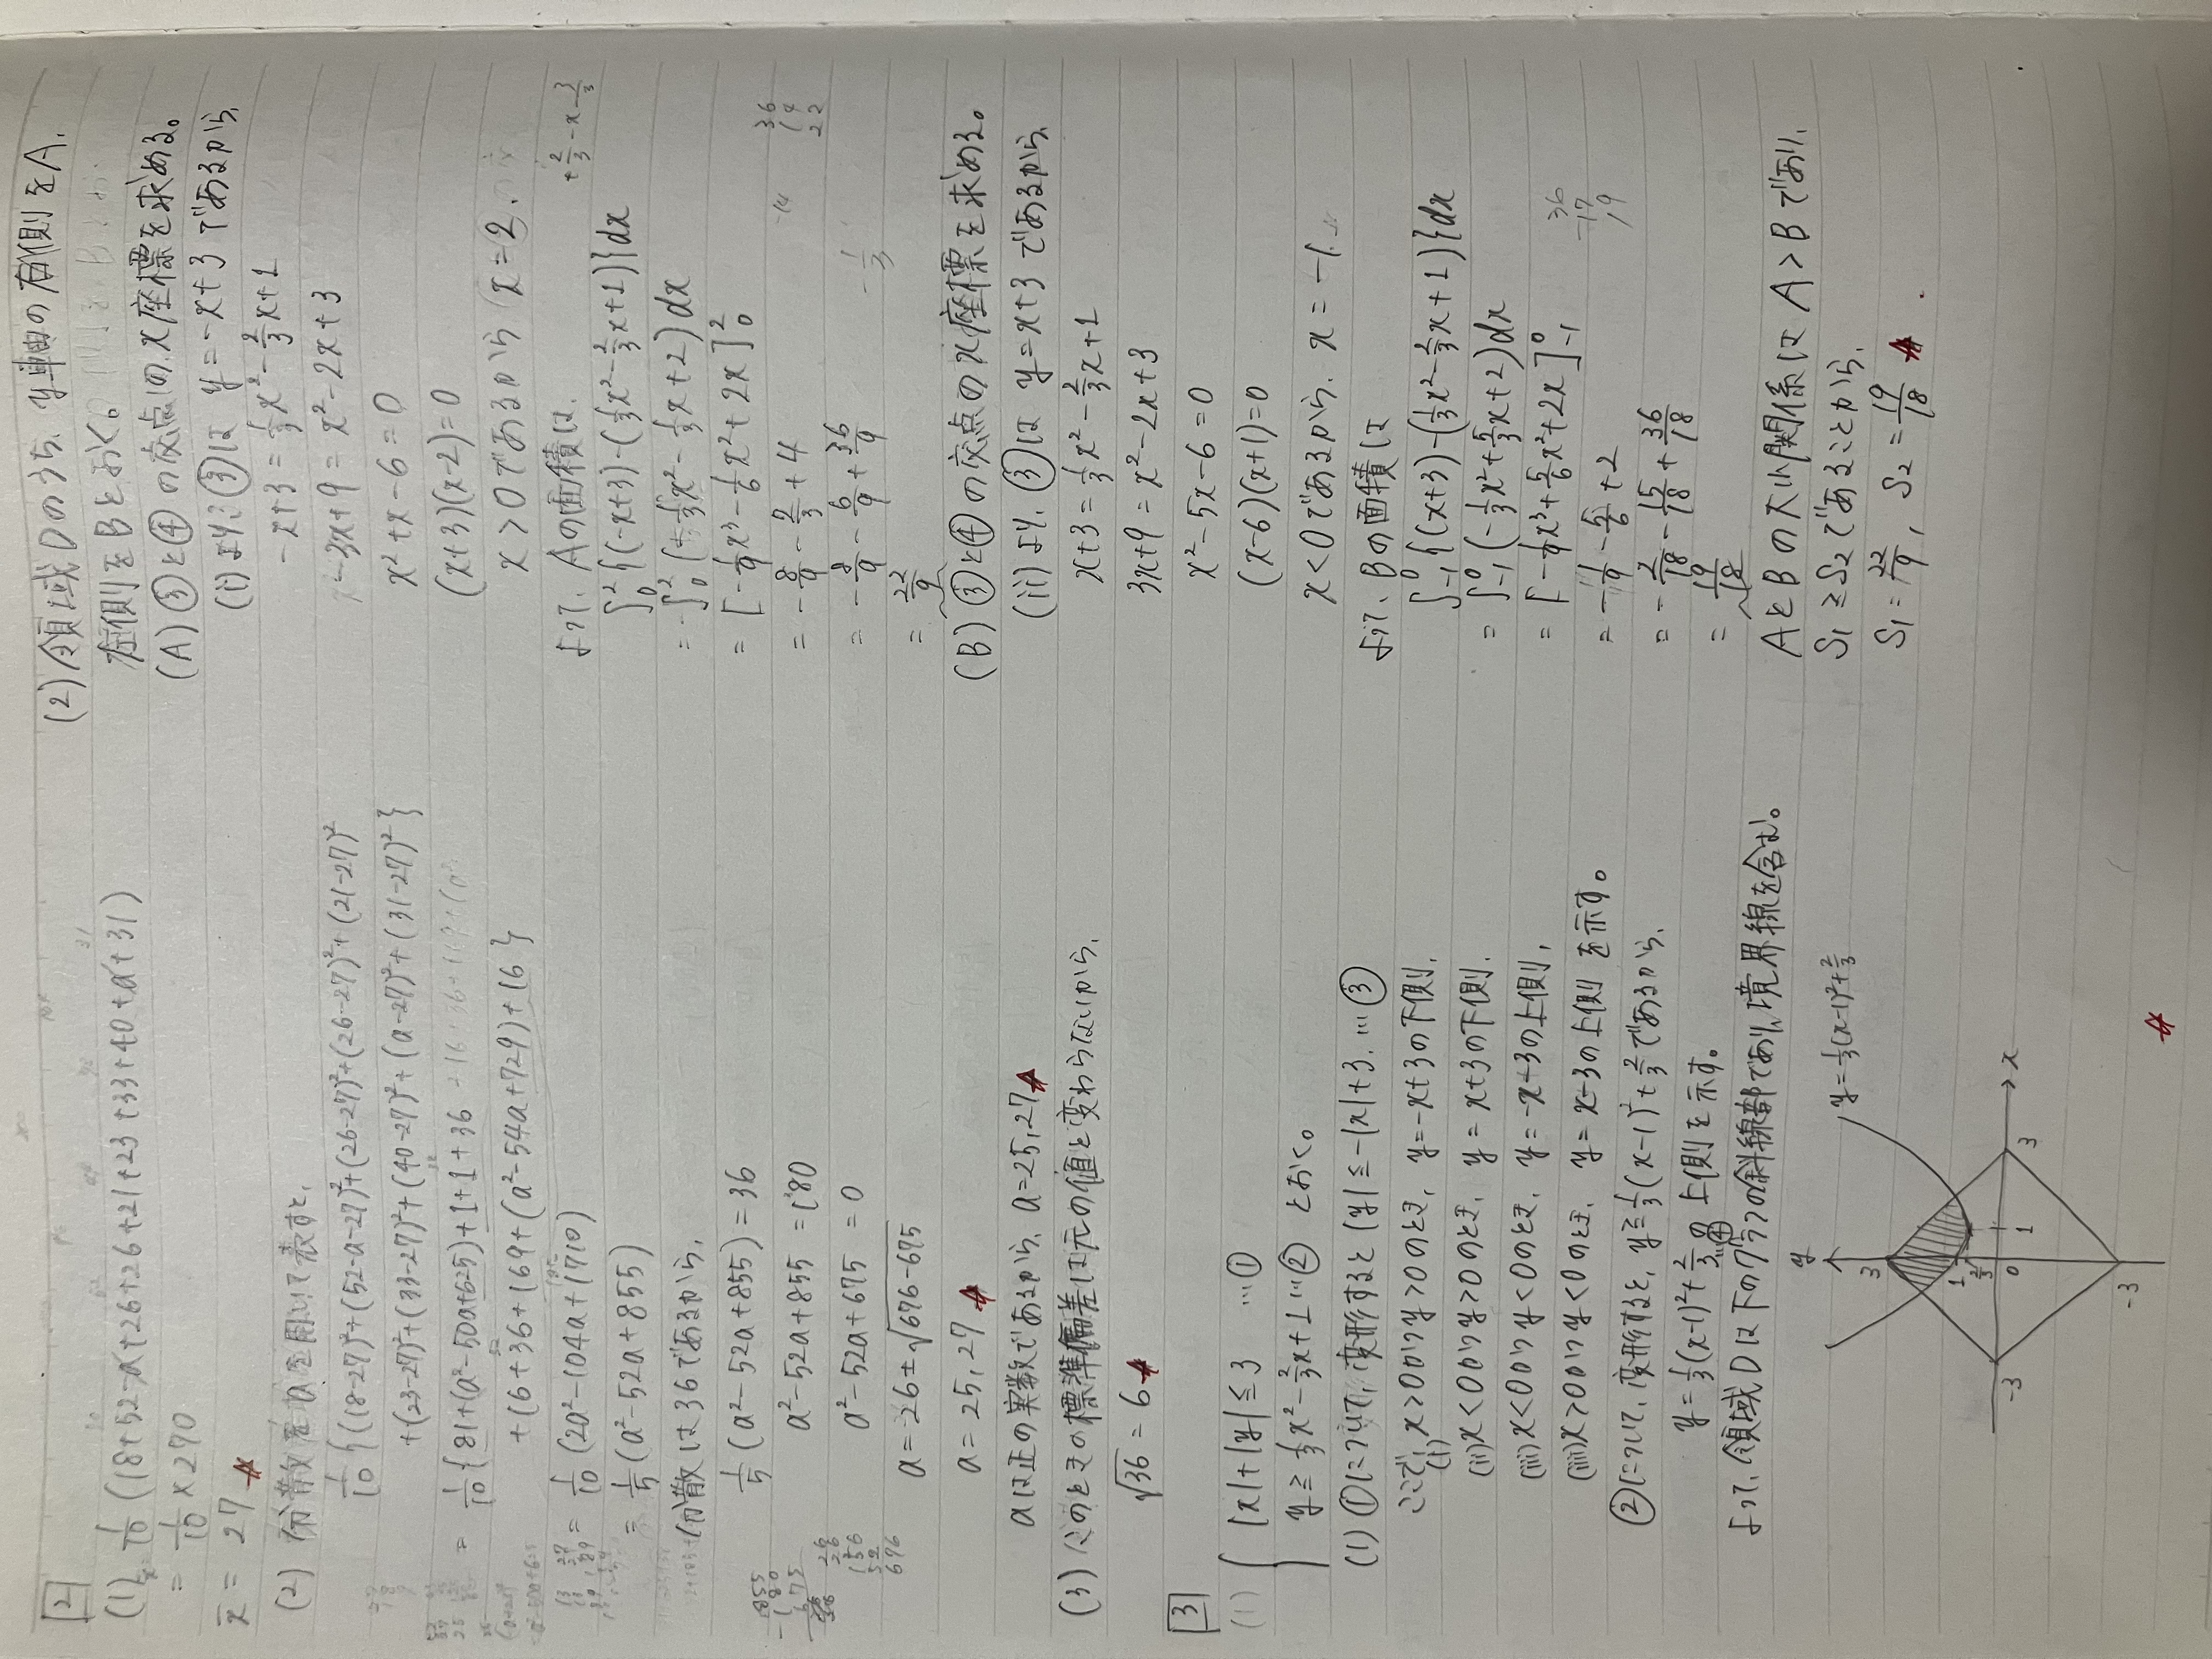 2
(1) x̄ = 1/10 (18+52-a+26+26+21+23+33+40+a+31)
= 1/10 × 270
x̄ = 27
(2) 分散をaを用いて表すと、
1/10 {(18-27)²+(52-a-27)²+(26-27)²+(26-27)²+(21-27)²
+(23-27)²+(33-27)²+(40-27)²+(a-27)²+(31-27)²}
= 1/10 {81+(a²-50a+625)+1+1+36
+16+36+169+(a²-54a+729)+16}
= 1/10 (2a²-104a+1710)
= 1/5 (a²-52a+855)
分散は36であるから、
1/5 (a²-52a+855) = 36
a²-52a+855 = 180
a²-52a+675 = 0
a = 26±√676-675
a = 25, 27
aは正の実数であるから、a = 25, 27
(3) このときの標準偏差は元の値と変わらないから、
√36 = 6
3
(1) { |x|+|y| ≦ 3 …①
y ≧ 1/3x² - 2/3x+1 …② とおく。
(1) ①について、変形すると |y| ≦ -|x|+3. …③
ここで、(i) x>0かつy>0のとき、y=-x+3の下側、
(ii) x<0かつy>0のとき、y=x+3の下側、
(iii) x<0かつy<0のとき、y=-x-3の上側、
(iiii) x>0かつy<0のとき、y=x-3の上側 を示す。
②について、変形すると、y≧1/3(x-1)²+2/3であるから、
y=1/3(x-1)²+2/3 …④の上側を示す。
よって、領域Dは下のグラフの斜線部であり、境界線を含む。
y=1/3(x-1)²+2/3
y
3
1
2/3
-3
0
1
3
x
-3
(2) 領域Dのうち、y軸の右側をA、
左側をBとおく。
(A) ③と④の交点のx座標を求める。
(i)より、③は y=-x+3 であるから
-x+3 = 1/3x² - 2/3x+1
-3x+9 = x²-2x+3
x²+x-6=0
(x+3)(x-2)=0
x>0であるから x=2.
よって、Aの面積は、
∫₀² {(-x+3)-(1/3x²-2/3x+1)}dx
= ∫₀² (-1/3x²-1/3x+2)dx
= [-1/9x³-1/6x²+2x]₀²
= -8/9 - 2/3 + 4
= -8/9 - 6/9 + 36/9
= 22/9
(B) ③と④の交点のx座標を求める。
(ii)より、③は y=x+3 であるから、
x+3 = 1/3x² - 2/3x+1
3x+9 = x²-2x+3
x²-5x-6=0
(x-6)(x+1)=0
x<0であるから、x=-1.
よって、Bの面積は
∫₋₁⁰ {(x+3)-(1/3x²-2/3x+1)}dx
= ∫₋₁⁰ (-1/3x²+5/3x+2)dx
= [-1/9x³+5/6x²+2x]₋₁⁰
= -1/9 - 5/6 + 2
= -2/18 - 15/18 + 36/18
= 19/18
AとBの大小関係は A>B であり、
S₁≧S₂であることから、
S₁=22/9, S₂=19/18